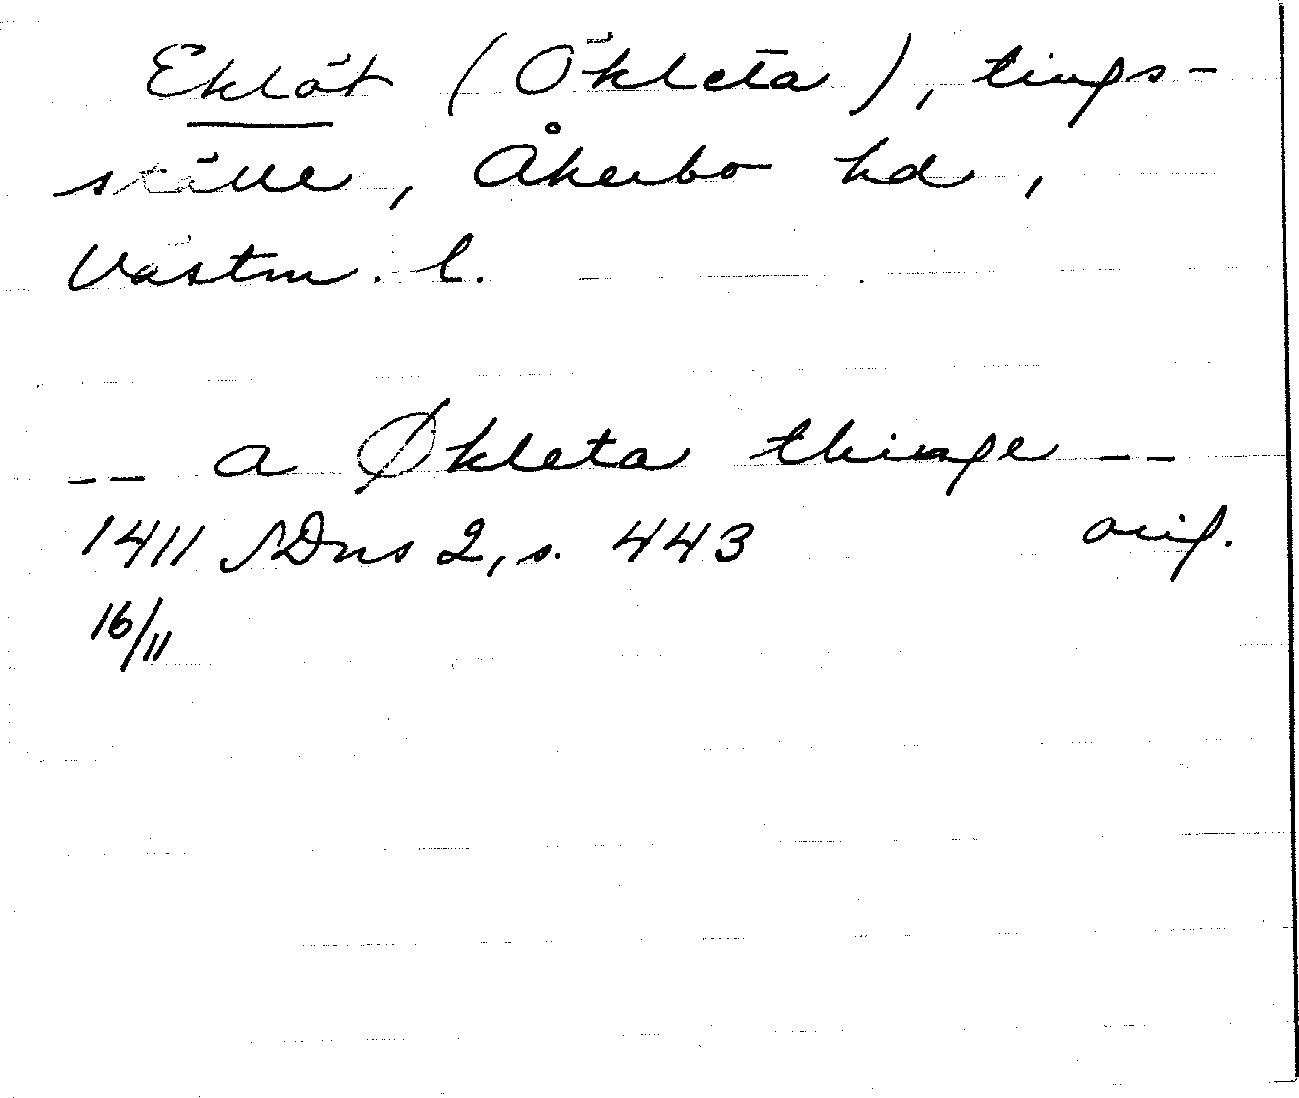 Eklöt (Ökleta), tings-
ställe, Åkerbo hd,
Västm. l.
-- a Økleta thinge --
1411 SDns 2, s. 443 orig.
16/11